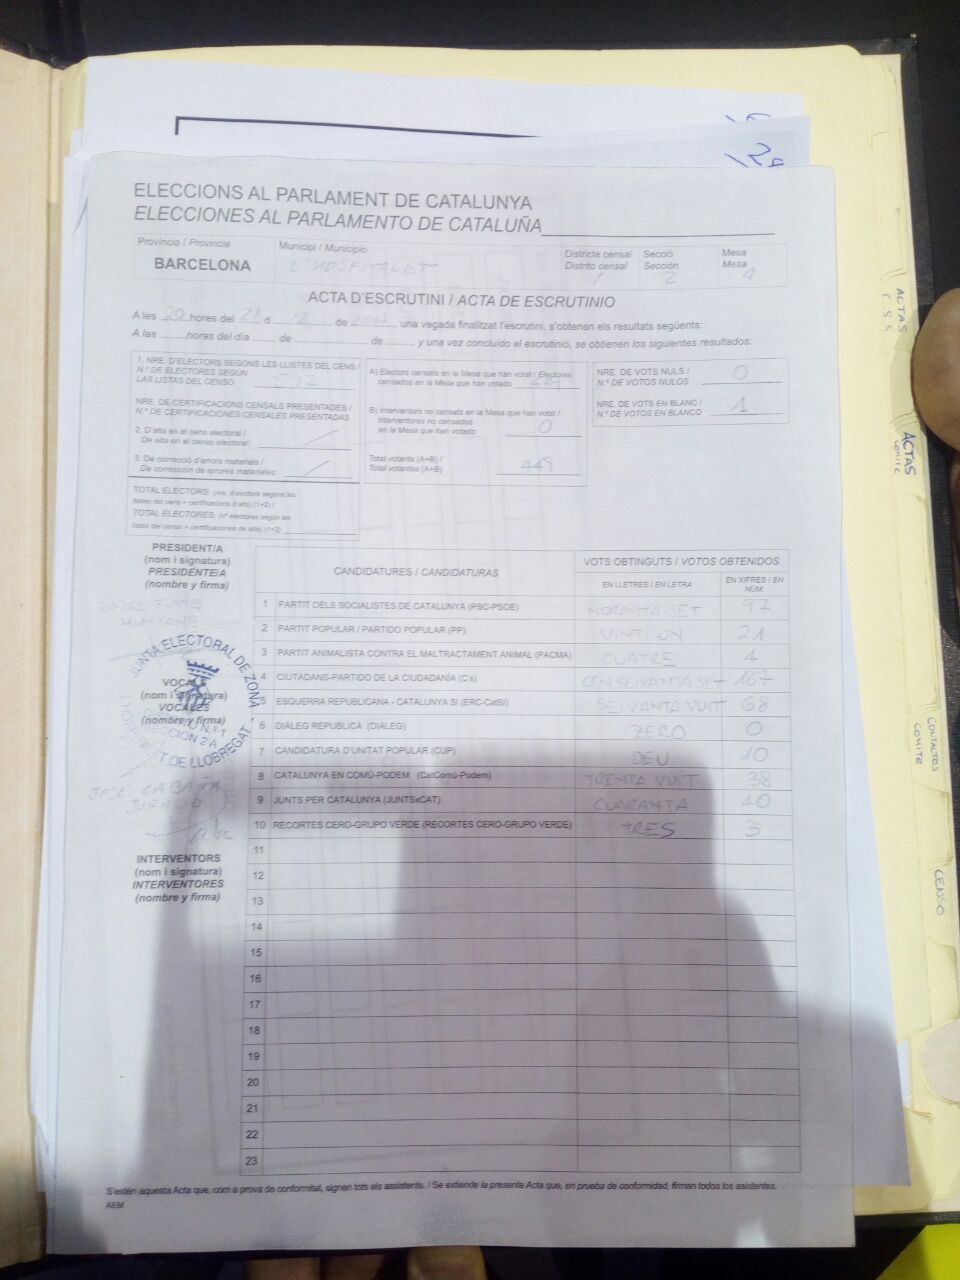 ELECCIONS AL PARLAMENT DE CATALUNYA
ELECCIONES AL PARLAMENTO DE CATALUÑA
Província / Provincia
Municipi / Municipio
Districte censal Secció Mesa
Distrito censal Sección Mesa
BARCELONA L'HOSPITALET 1 2 A
ACTA D'ESCRUTINI / ACTA DE ESCRUTINIO
A les 22 hores del 21 d 12 de 2017, una vegada finalitzat l'escrutini, s'obtenen els resultats següents:
A las horas del día de de , y una vez concluido el escrutinio, se obtienen los siguientes resultados:
1. NRE. D'ELECTORS SEGONS LES LLISTES DEL CENS /
N.º DE ELECTORES SEGÚN
LAS LISTAS DEL CENSO 542
NRE. DE CERTIFICACIONS CENSALS PRESENTADES /
N.º DE CERTIFICACIONES CENSALES PRESENTADAS
2. D'alta en el cens electoral /
De alta en el censo electoral:
3. De correcció d'errors materials /
De corrección de errores materiales:
TOTAL ELECTORS: (nre. d'electors segons les
llistes del cens + certificacions d'alta) (1+2) /
TOTAL ELECTORES: (nº electores según las
listas del censo + certificaciones de alta) (1+2)
A) Electors censats en la Mesa que han votat / Electores
censados en la Mesa que han votado 449
B) Interventors no censats en la Mesa que han votat /
Interventores no censados
en la Mesa que han votado 0
Total votants (A+B) /
Total votantes (A+B) 449
NRE. DE VOTS NULS /
N.º DE VOTOS NULOS 0
NRE. DE VOTS EN BLANC /
N.º DE VOTOS EN BLANCO 1
PRESIDENT/A
(nom i signatura)
PRESIDENTE/A
(nombre y firma)
VOCALS
(nom i signatura)
VOCALES
(nombre y firma)
JUNTA ELECTORAL DE ZONA
L'HOSPITALET DE LLOBREGAT
JOSE CABAÑA
INTERVENTORS
(nom i signatura)
INTERVENTORES
(nombre y firma)
CANDIDATURES / CANDIDATURAS
VOTS OBTINGUTS / VOTOS OBTENIDOS
EN LLETRES / EN LETRA
EN XIFRES / EN NÚM.
1 PARTIT DELS SOCIALISTES DE CATALUNYA (PSC-PSOE) NORANTA SET 97
2 PARTIT POPULAR / PARTIDO POPULAR (PP) VINTIUN 21
3 PARTIT ANIMALISTA CONTRA EL MALTRACTAMENT ANIMAL (PACMA) CUATRE 4
4 CIUTADANS-PARTIDO DE LA CIUDADANÍA (C's) CENSEIXANTA SET 167
5 ESQUERRA REPUBLICANA - CATALUNYA SÍ (ERC-CatSí) SEIXANTA VUIT 68
6 DIÀLEG REPUBLICÀ (DIÀLEG) ZERO 0
7 CANDIDATURA D'UNITAT POPULAR (CUP) DEU 10
8 CATALUNYA EN COMÚ-PODEM (CatComú-Podem) TRENTA VUIT 38
9 JUNTS PER CATALUNYA (JUNTSxCAT) CUARANTA 40
10 RECORTES CERO-GRUPO VERDE (RECORTES CERO-GRUPO VERDE) TRES 3
11
12
13
14
15
16
17
18
19
20
21
22
23
S'estén aquesta Acta que, com a prova de conformitat, signen tots els assistents. / Se extiende la presente Acta que, en prueba de conformidad, firman todos los asistentes.
AEM
ACTAS
C.S.S
ACTAS
COMITE
CONTACTES
COMITE
CENSO